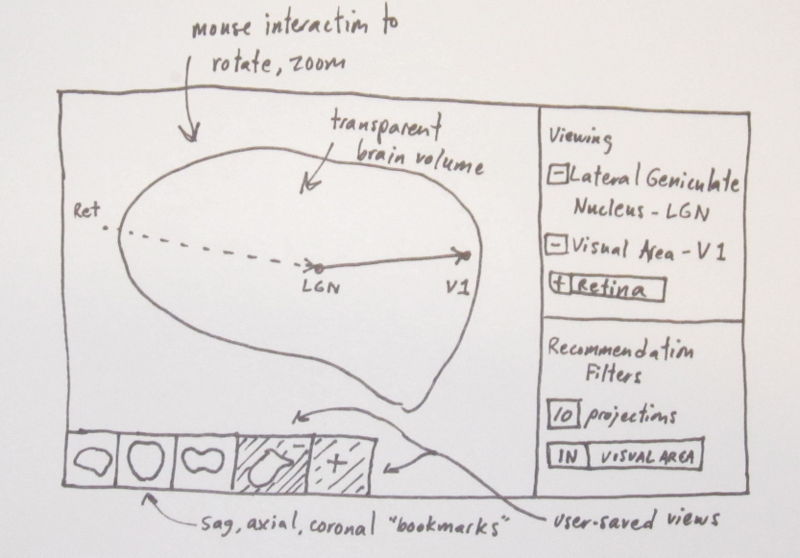 mouse interaction to
rotate, zoom
transparent
brain volume
Ret
LGN
V1
Viewing
- Lateral Geniculate
Nucleus - LGN
- Visual Area - V1
+ Retina
Recommendation
Filters
10 projections
IN VISUAL AREA
-
+
sag, axial, coronal "bookmarks"
user-saved views